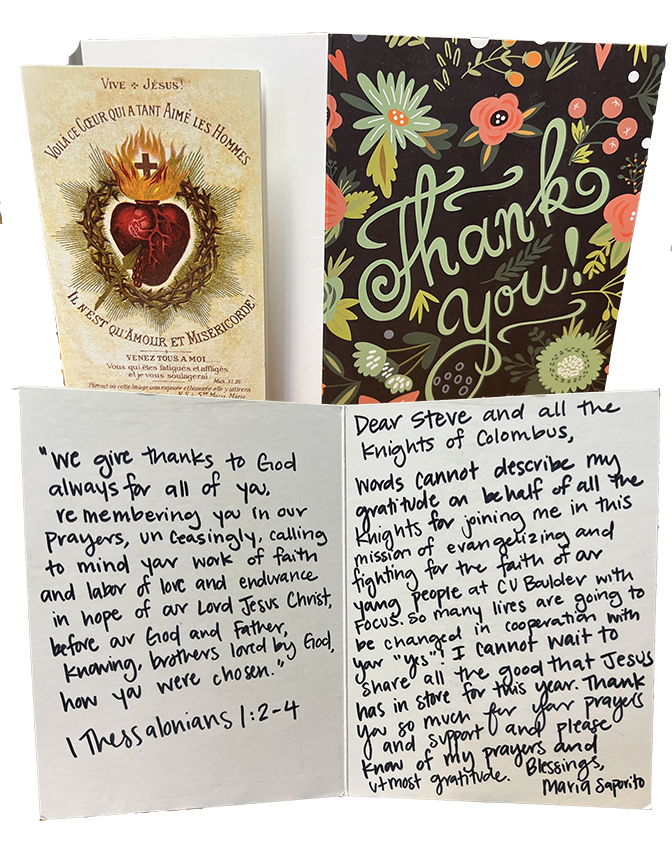 VIVE ✢ JÉSUS!
VOILA CE CŒUR QUI A TANT AIMÉ LES HOMMES
IL N'EST QU'AMOUR ET MISERICORDE!
VENEZ TOUS A MOI.....
Vous qui êtes fatigués et affligés
et je vous soulagerai.
Mat. XI. 28
Partout où cette Image sera exposée et honorée elle y attirera
Thank
you!
"We give thanks to God
always for all of you,
remembering you in our
prayers, unceasingly, calling
to mind your work of faith
and labor of love and endurance
in hope of our Lord Jesus Christ,
before our God and Father,
knowing, brothers lord by God,
how you were chosen."
1 Thessalonians 1:2-4
Dear Steve and all the
Knights of Colombus,
Words cannot describe my
gratitude on behalf of all the
Knights for joining me in this
mission of evangelizing and
fighting for the faith of our
young people at CU Boulder with
FOCUS. So many lives are going to
be changed in cooperation with
your "yes"! I cannot wait to
share all the good that Jesus
has in store for this year. Thank
you so much for your prayers
and support and please
know of my prayers and
utmost gratitude. Blessings,
Maria Saporito